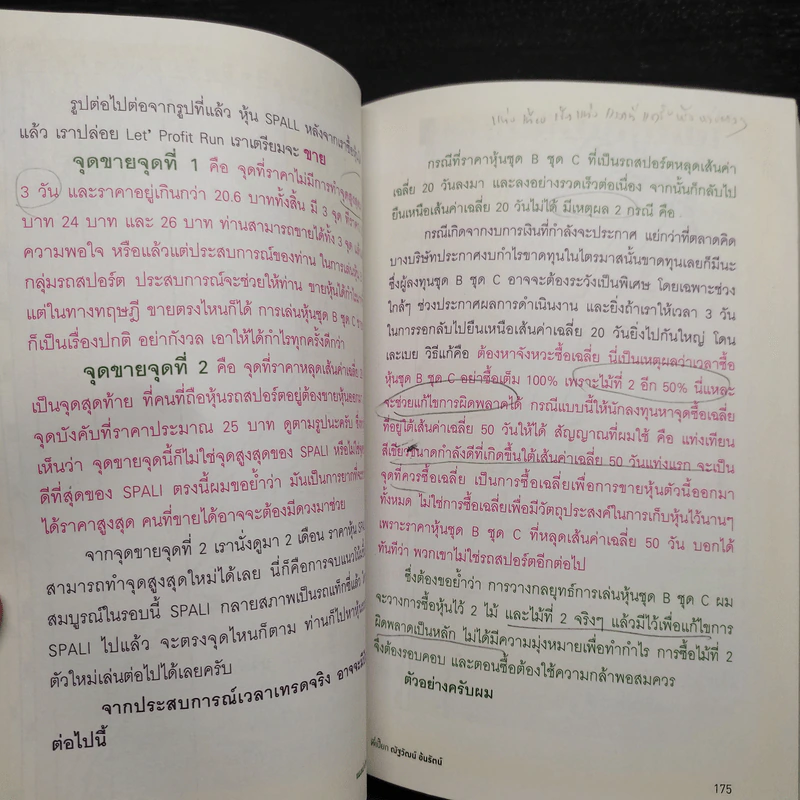 รูปต่อไปต่อจากรูปที่แล้ว หุ้น SPALL หลังจากเราซื้อ
แล้ว เราปล่อย Let' Profit Run เราเตรียมจะ ขาย
จุดขายจุดที่ 1 คือ จุดที่ราคาไม่มีการทำจุดสูงสุด
3 วัน และราคาอยู่เกินกว่า 20.6 บาททั้งสิ้น มี 3 จุด ที่ราคา
บาท 24 บาท และ 26 บาท ท่านสามารถขายได้ทั้ง 3 จุด
ความพอใจ หรือแล้วแต่ประสบการณ์ของท่าน ในการเล่นหุ้น
กลุ่มรถสปอร์ต ประสบการณ์จะช่วยให้ท่าน ขายหุ้นได้กำไร
แต่ในทางทฤษฎี ขายตรงไหนก็ได้ การเล่นหุ้นชุด B ชุด C
ก็เป็นเรื่องปกติ อย่ากังวล เอาให้ได้กำไรทุกครั้งดีกว่า
จุดขายจุดที่ 2 คือ จุดที่ราคาหลุดเส้นค่าเฉลี่ย
เป็นจุดสุดท้าย ที่คนที่ถือหุ้นรถสปอร์ตอยู่ต้องขายหุ้นออก
จุดบังคับที่ราคาประมาณ 25 บาท ดูตามรูปนะครับ
เห็นว่า จุดขายจุดนี้ก็ไม่ใช่จุดสูงสุดของ SPALI หรือไม่ใช่
ดีที่สุ่ดของ SPALI ตรงนี้ผมขอย้ำว่า มันเป็นการยากที่จะ
ได้ราคาสูงสุด คนที่ขายได้อาจจะต้องมีดวงมาช่วย
จากจุดขายจุดที่ 2 เรานั่งดูมา 2 เดือน ราคาหุ้น
สามารถทำจุดสูงสุดใหม่ได้เลย นี่ก็คือการจบแนวโน้ม
สมบูรณ์ในรอบนี้ SPALI กลายสภาพเป็นรถแท็กซี่แล้ว
SPALI ไปแล้ว จะตรงจุดไหนก็ตาม ท่านก็ไปหาหุ้น
ตัวใหม่เล่นต่อไปได้เลยครับ
จากประสบการณ์เวลาเทรดจริง อาจจะมี
ต่อไปนี้
กรณีที่ราคาหุ้นชุด B ชุด C ที่เป็นรถสปอร์ตหลุดเส้นค่า
เฉลี่ย 20 วันลงมา และลงอย่างรวดเร็วต่อเนื่อง จากนั้นก็กลับไป
ยืนเหนือเส้นค่าเฉลี่ย 20 วันไม่ได้ มีเหตุผล 2 กรณี คือ
กรณีเกิดจากงบการเงินที่กำลังจะประกาศ แย่กว่าที่ตลาดคิด
บางบริษัทประกาศงบกำไรขาดทุนในไตรมาสนั้นขาดทุนเลยก็มีนะ
ซึ่งผู้ลงทุนชุด B ชุด C อาจจะต้องระวังเป็นพิเศษ โดยเฉพาะช่วง
ใกล้ๆ ช่วงประกาศผลการดำเนินงาน และยิ่งถ้าเราให้เวลา 3 วัน
ในการรอกลับไปยืนเหนือเส้นค่าเฉลี่ย 20 วันยิ่งไปกันใหญ่ โดน
เละเบย วิธีแก้คือ ต้องหาจังหวะซื้อเฉลี่ย นี่เป็นเหตุผลว่าเวลาซื้อ
หุ้นชุด B ชุด C อย่าซื้อเต็ม 100% เพราะไม้ที่ 2 อีก 50% นี่แหละ
จะช่วยแก้ไขการผิดพลาดได้ กรณีแบบนี้ให้นักลงทุนหาจุดซื้อเฉลี่ย
ที่อยู่ใต้เส้นค่าเฉลี่ย 50 วันให้ได้ สัญญาณที่ผมใช้ คือ แท่งเทียน
สีเขียวขนาดกำลังดีที่เกิดขึ้นใต้เส้นค่าเฉลี่ย 50 วันแท่งแรก จะเป็น
จุดที่ควรซื้อเฉลี่ย เป็นการซื้อเฉลี่ยเพื่อการขายหุ้นตัวนี้ออกมา
ทั้งหมด ไม่ใช่การซื้อเฉลี่ยเพื่อมีวัตถุประสงค์ในการเก็บหุ้นไว้นานๆ
เพราะราคาหุ้นชุด B ชุด C ที่หลุดเส้นค่าเฉลี่ย 50 วัน บอกได้
ทันทีว่า พวกเขาไม่ใช่รถสปอร์ตอีกต่อไป
ซึ่งต้องขอย้ำว่า การวางกลยุทธ์การเล่นหุ้นชุด B ชุด C ผม
จะวางการซื้อหุ้นไว้ 2 ไม้ และไม้ที่ 2 จริงๆ แล้วมีไว้เพื่อแก้ไขการ
ผิดพลาดเป็นหลัก ไม่ได้มีความมุ่งหมายเพื่อทำกำไร การซื้อไม้ที่ 2
จึงต้องรอบคอบ และตอนซื้อต้องใช้ความกล้าพอสมควร
ตัวอย่างครับผม
ณัฐวัฒน์ อ้นรัตน์
175